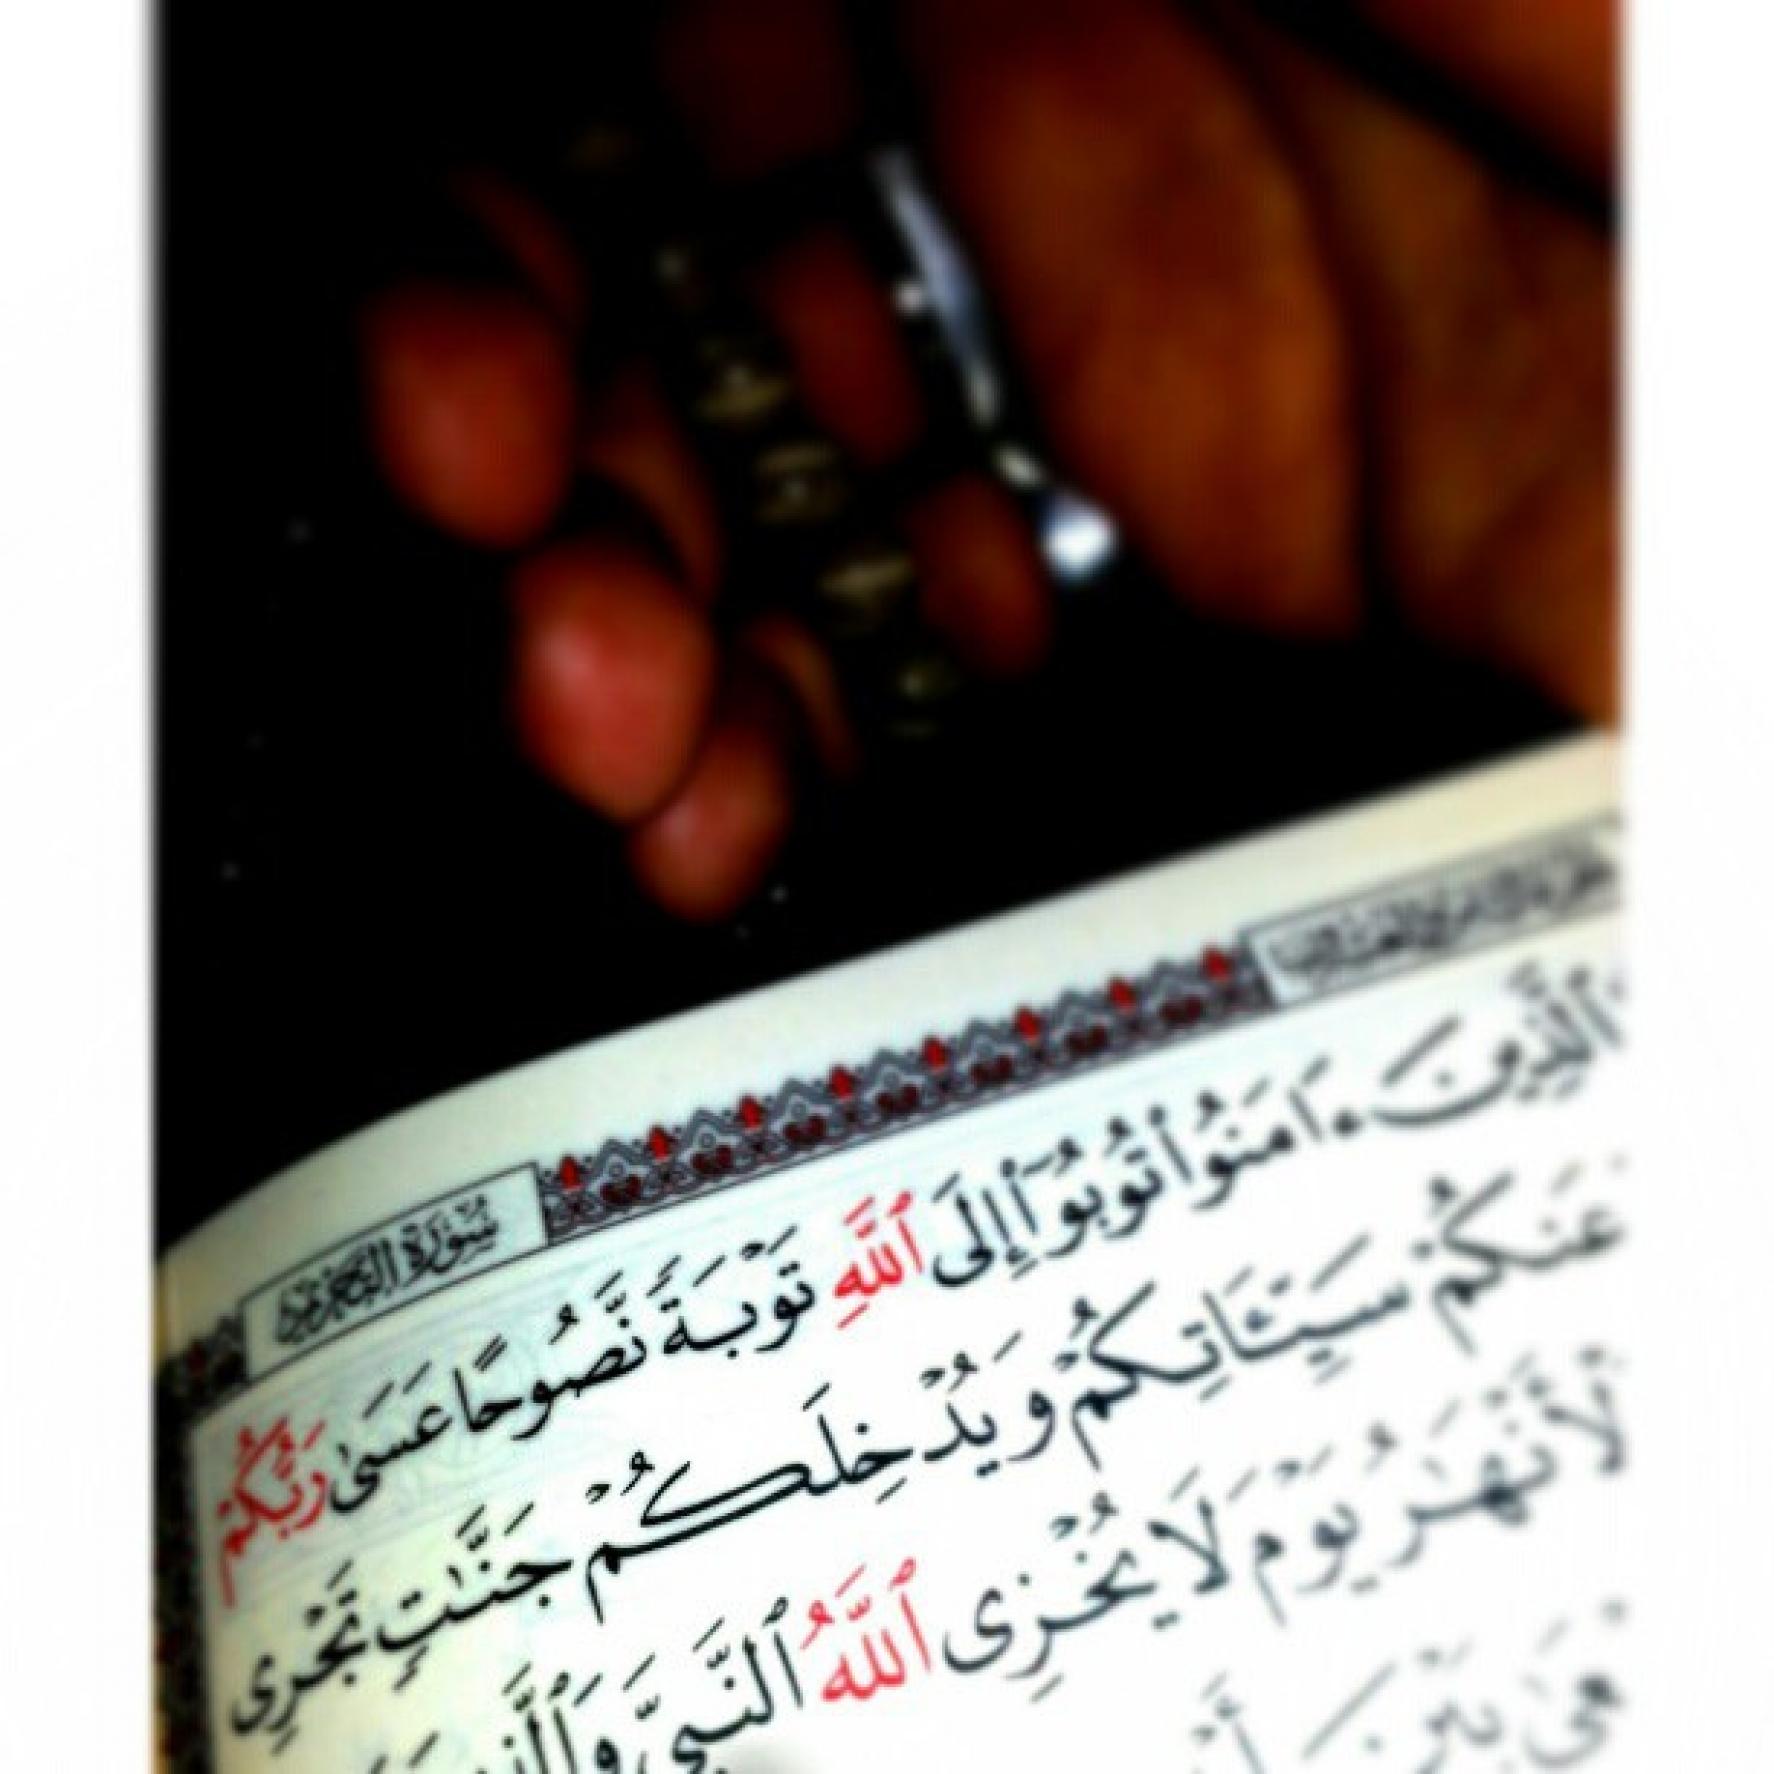 سُورَةُ التَّحْرِيمِ
ٱلَّذِينَ ءَامَنُوا۟ تُوبُوٓا۟ إِلَى ٱللَّهِ تَوْبَةً نَّصُوحًا عَسَىٰ رَبُّكُمْ
عَنكُمْ سَيِّـَٔاتِكُمْ وَيُدْخِلَكُمْ جَنَّـٰتٍ تَجْرِى
ٱلْأَنْهَـٰرُ يَوْمَ لَا يُخْزِى ٱللَّهُ ٱلنَّبِىَّ وَٱلَّذِينَ
بَيْنَ